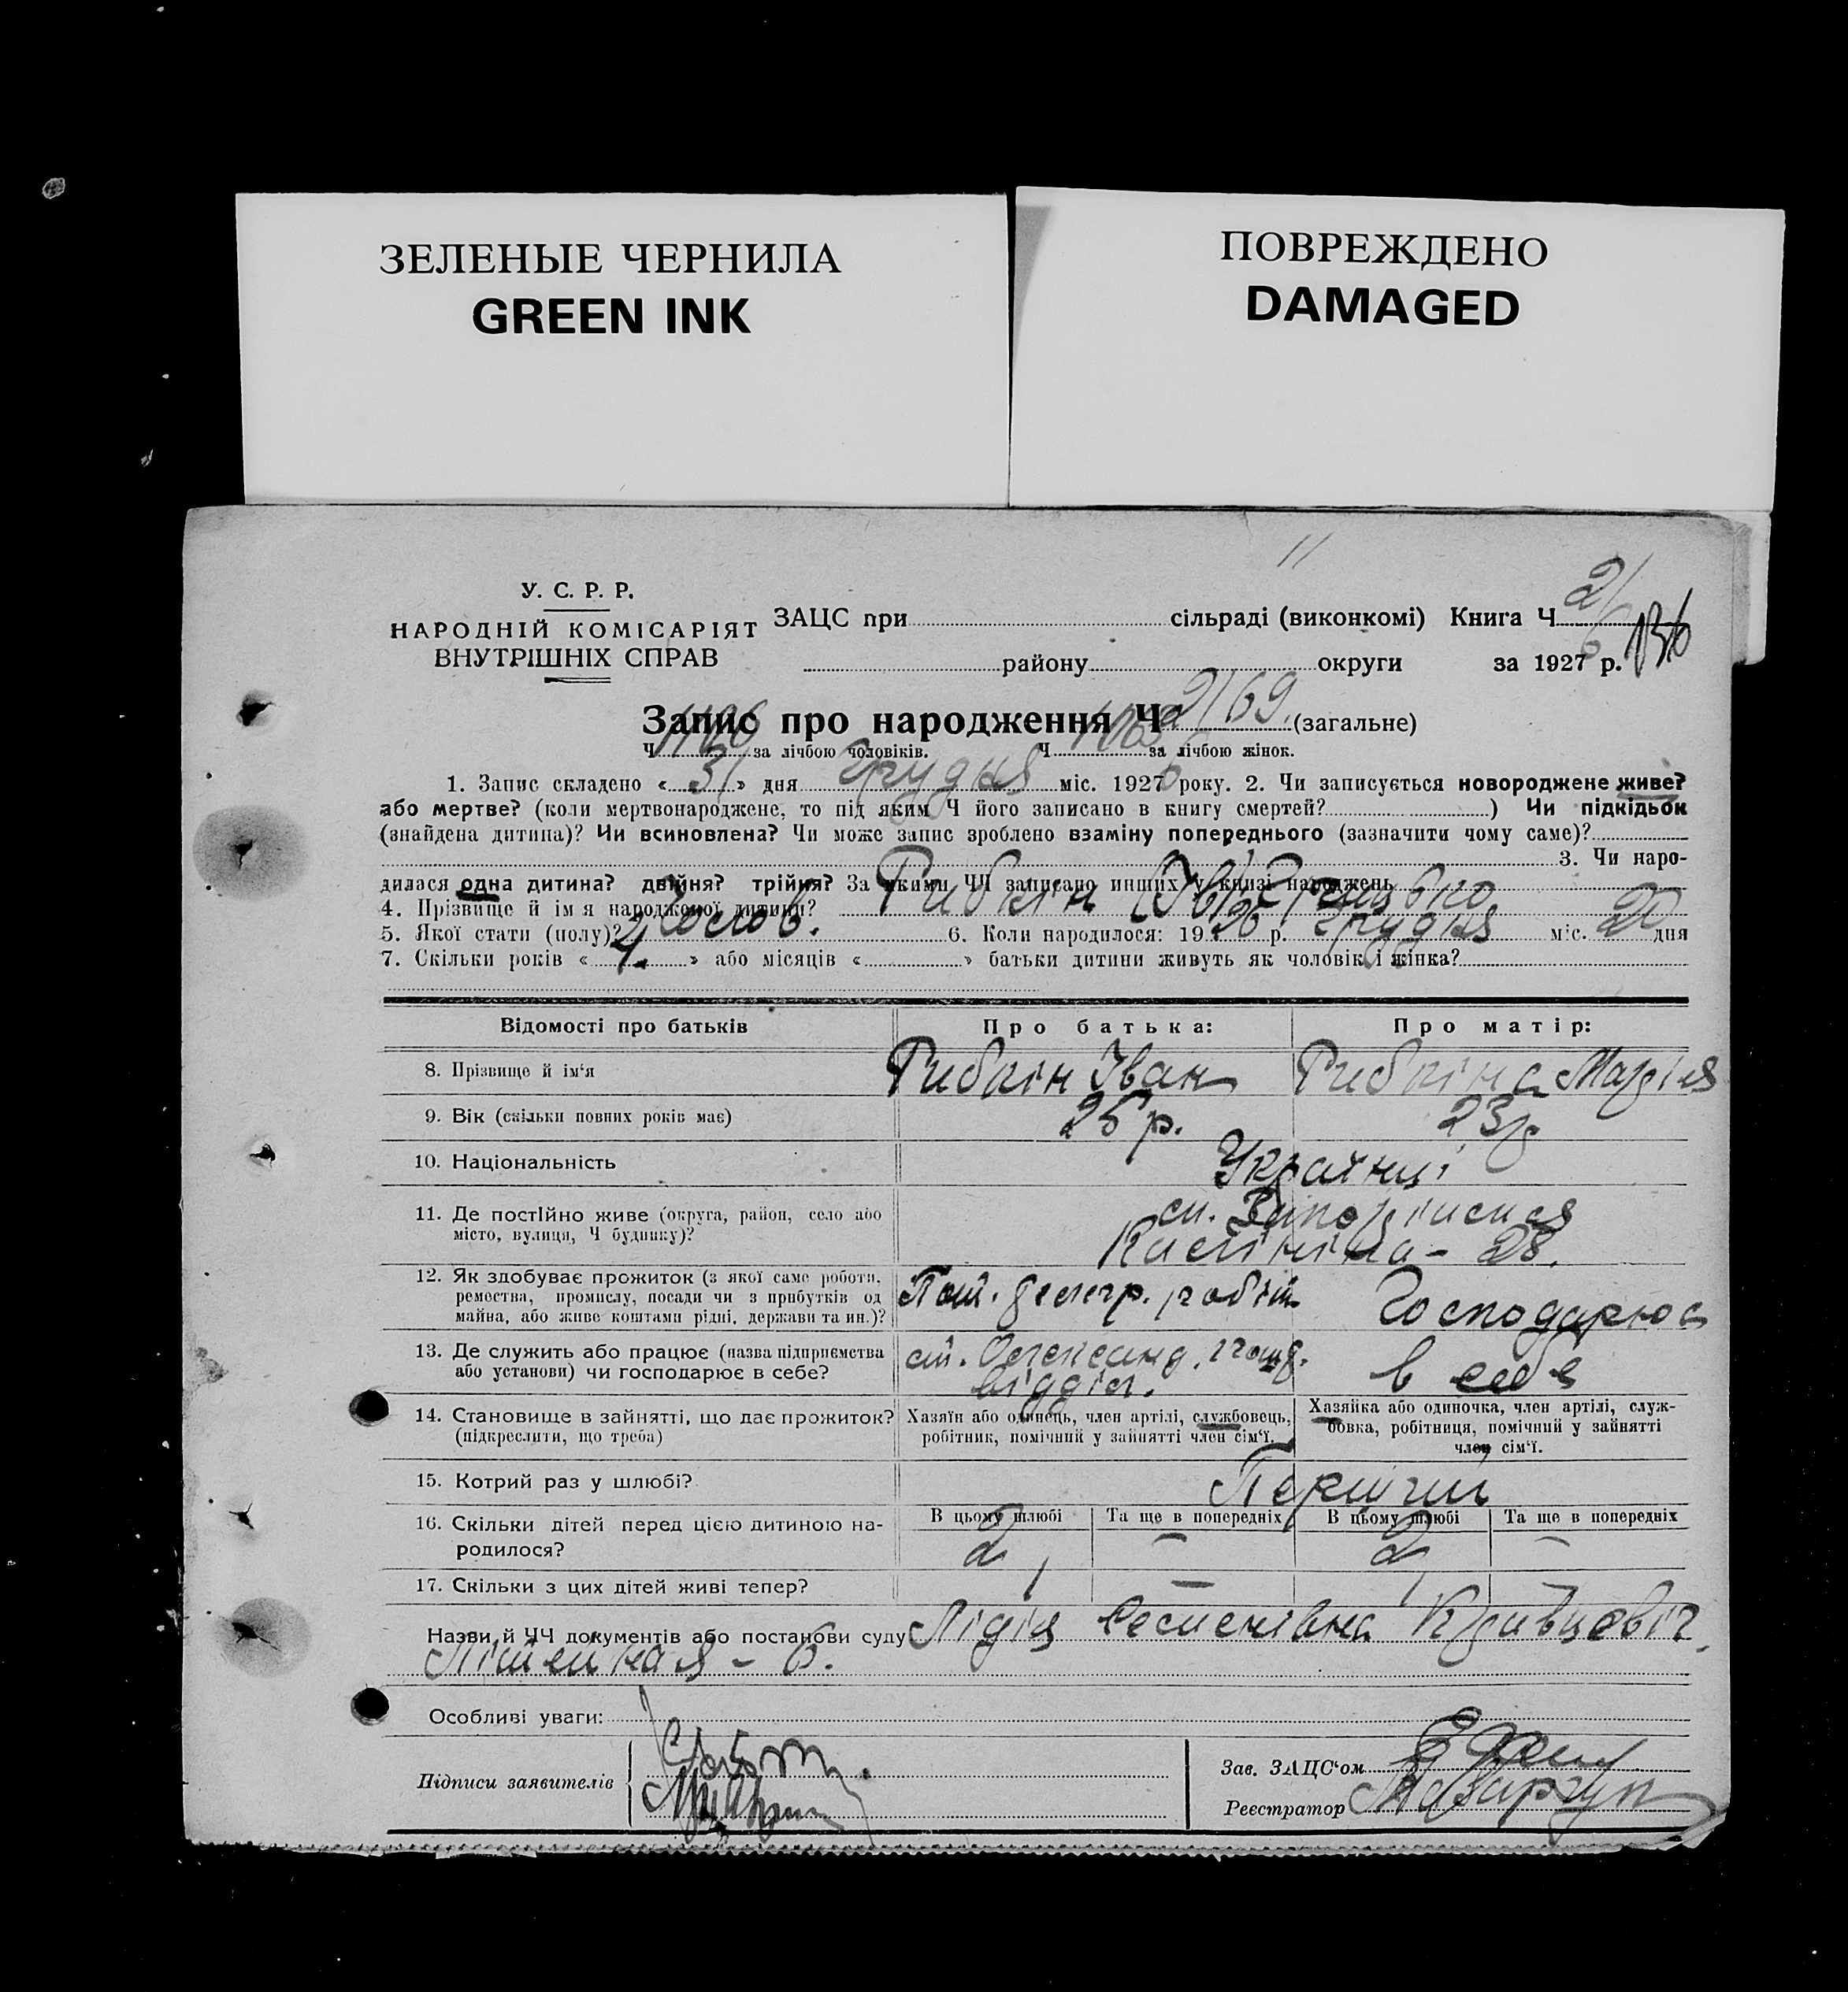 ЗЕЛЕНЫЕ ЧЕРНИЛА
GREEN INK
ПОВРЕЖДЕНО
DAMAGED
У. С. Р. Р.
НАРОДНІЙ КОМІСАРІЯТ
ВНУТРІШНІХ СПРАВ
ЗАЦС при сільраді (виконкомі) Книга Ч 2/6 136
району округи за 1927 р.
Запис про народження Ч 2169. (загальне)
Ч за лічбою чоловіків. Ч за лічбою жінок.
1. Запис складено «31» дня Грудня міс. 1927 6 року. 2. Чи записується новороджене живе?
або мертве? (коли мертвонароджене, то під яким Ч його записано в книгу смертей? ) Чи підкідьок
(знайдена дитина)? Чи всиновлена? Чи може запис зроблено взаміну попереднього (зазначити чому саме)?
3. Чи наро-
дилася одна дитина? двійня? трійня? За якими ЧЧ записано инших у книзі народжень
4. Прізвище й ім'я народженої дитини? Рибкін
5. Якої стати (полу)? Чолов. 6. Коли народилося: 1926 р. Грудня міс. 20 дня
7. Скільки років «4» або місяців « » батьки дитини живуть як чоловік і жінка?
Відомості про батьків Про батька: Про матір:
8. Прізвище й ім'я Рибкін Іван Рибкіна Марія
9. Вік (скільки повних років має) 25 р. 23 р.
10. Національність Українці
11. Де постійно живе (округа, район, село або
місто, вулиця, Ч будинку)?
28.
12. Як здобуває прожиток (з якої саме роботи,
ремества, промислу, посади чи з прибутків од
майна, або живе коштами рідні, держави та ин.)?
Господарює
13. Де служить або працює (назва підприємства
або установи) чи господарює в себе?
ст. Олександ. пошт.
відділ.
в себе
14. Становище в зайнятті, що дає прожиток?
(підкреслити, що треба)
Хазяїн або одинець, член артілі, службовець,
робітник, помічний у зайнятті член сім'ї.
Хазяйка або одиночка, член артілі, служ-
бовка, робітниця, помічний у зайнятті
член сім'ї.
15. Котрий раз у шлюбі? Перший
16. Скільки дітей перед цією дитиною на-
родилося?
В цьому шлюбі Та ще в попередніх В цьому шлюбі Та ще в попередніх
2 – 2 –
17. Скільки з цих дітей живі тепер? 1 – 1 –
Назви й ЧЧ документів або постанови суду Лідія
6.
Особливі уваги:
Підписи заявителів
Зав. ЗАЦС'ом
Реєстратор